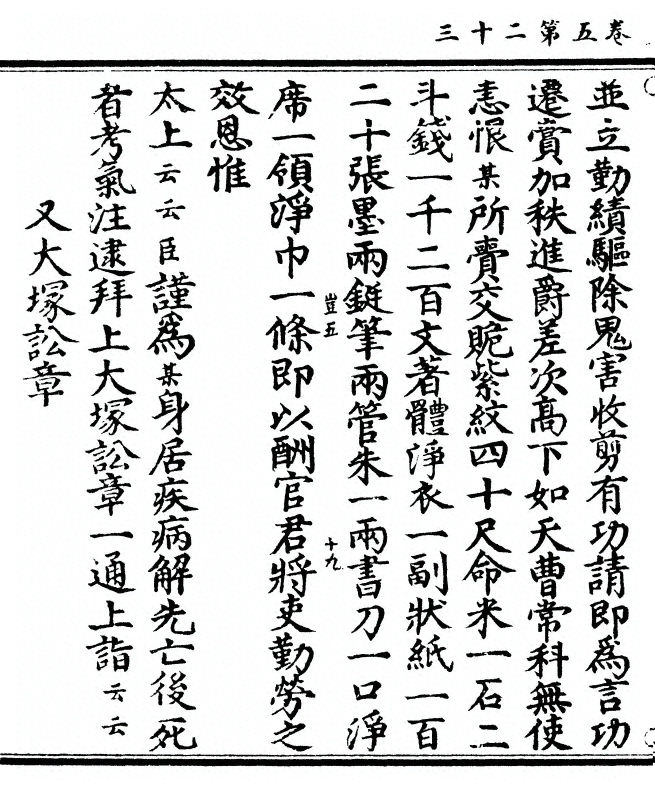 卷五第二十三
並立勤績驅除鬼害收剪有功請即爲言功
遷賞加秩進爵差次高下如天曹常科無使
恚恨某所賷交賍紫紋四十尺命米一石二
斗錢一千二百文著體淨衣一副狀紙一百
二十張墨兩鋌筆兩管朱一兩書刀一口淨
豈五
十九
席一領淨巾一條即以酬官君將吏勤勞之
效恩惟
太上云云臣謹爲某身居疾病解先亡後死
者考氣注逮拜上大塚訟章一通上詣云云
又大塚訟章